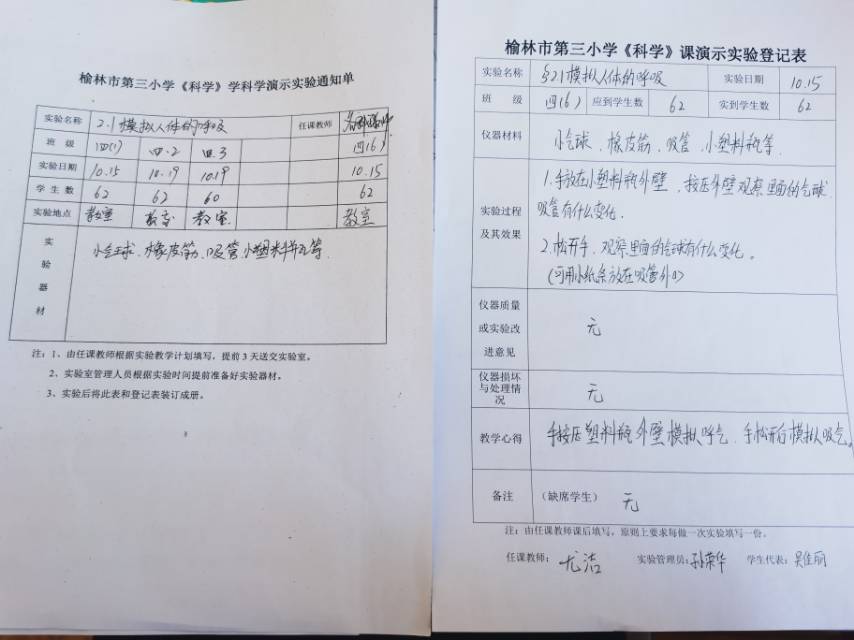 榆林市第三小学《科学》学科学演示实验通知单
实验名称 2.1模拟人体的呼吸 任课教师
班 级 四(1) 四.2 四.3 四(6)
实验日期 10.15 10.19 10.19 10.15
学生数 62 62 60 62
实验地点 教室 教室 教室 教室
实验器材 小气球、橡皮筋、吸管、小塑料瓶等
注：1、由任课教师根据实验教学计划填写，提前3天送交实验室。
2、实验室管理人员根据实验时间提前准备好实验器材。
3、实验后将此表和登记表装订成册。
榆林市第三小学《科学》课演示实验登记表
实验名称 §2.1模拟人体的呼吸 实验日期 10.15
班 级 四(6) 应到学生数 62 实到学生数 62
仪器材料 小气球、橡皮筋、吸管、小塑料瓶等
实验过程及其效果
1.手放在小塑料瓶外壁，按压外壁观察里面的气球、
吸管有什么变化.
2.松开手，观察里面的气球有什么变化。
(可用小纸条放在吸管外口)
仪器质量或实验改进意见 无
仪器损坏与处理情况 无
教学心得 手按压塑料瓶外壁模拟呼气，手松开后模拟吸气。
备注 （缺席学生） 无
注：由任课教师课后填写，原则上要求每做一次实验填写一份。
任课教师： 尤洁 实验管理员：孙荣华 学生代表：吴佳丽